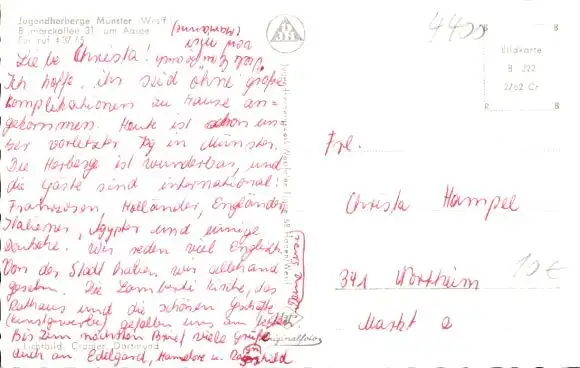 Jugendherberge Münster (Westf.)
Bismarckallee 31 am Aasee
Fernruf 4 37 65
Liebe Christa!
Ich hoffe, ihr seid ohne große
Komplikationen zu Hause an-
gekommen. Heute ist schon un-
ser vorletzter Tag in Münster.
Die Herberge ist wunderbar, und
die Gäste sind international:
Franzosen, Holländer, Engländer,
Italiener, Ägypter und einige
Deutsche. Wir reden viel Englisch.
Von der Stadt haben wir allerhand
gesehen. Die Lamberti Kirche, das
Rathaus und die schönen Geschäfte
(Kunstgewerbe) gefallen uns am besten
Bis zum nächsten Brief viele Grüße
auch an Edelgard, Hannelore u.
Lichtbild Cramer, Dortmund
Originalfoto
4400
Bildkarte
B 222
2762 Cr
Frl.
Christa Hampel
341 Northeim
Markt 2
10 €